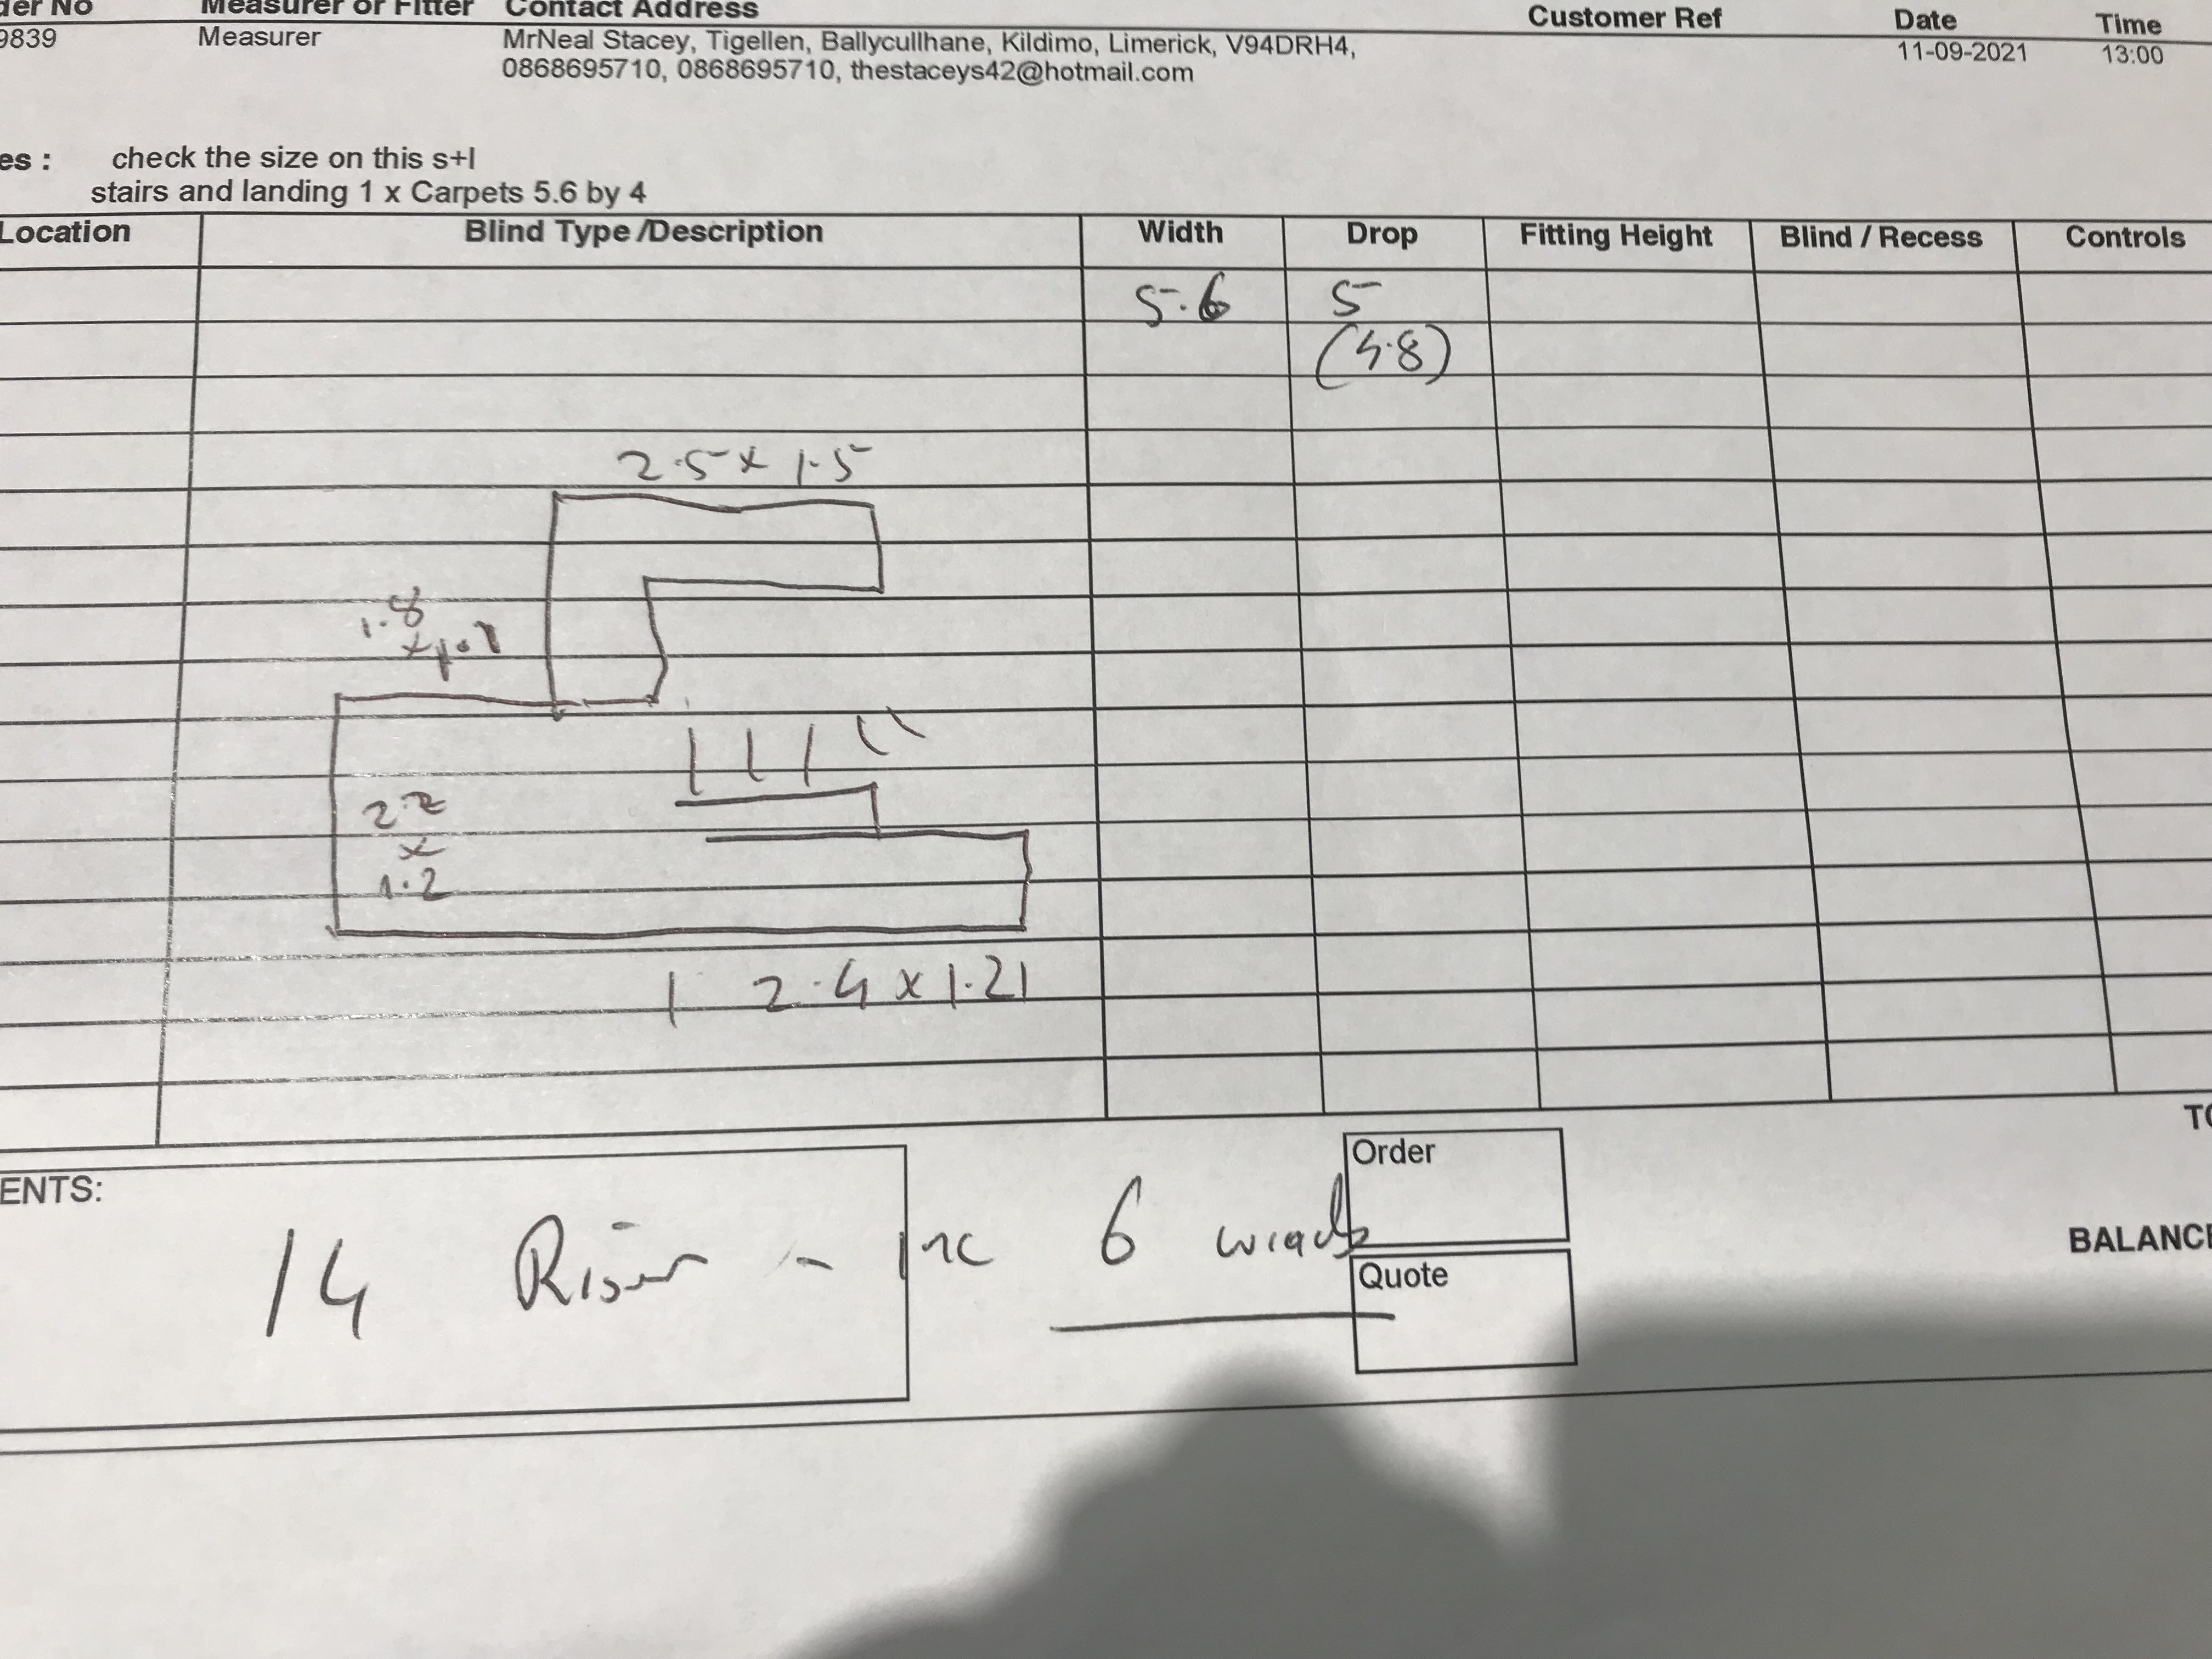 der No Measurer or Fitter Contact Address Customer Ref Date Time
9839 Measurer MrNeal Stacey, Tigellen, Ballycullhane, Kildimo, Limerick, V94DRH4, 11-09-2021 13:00
0868695710, 0868695710, thestaceys42@hotmail.com
es : check the size on this s+l
stairs and landing 1 x Carpets 5.6 by 4
Location Blind Type /Description Width Drop Fitting Height Blind / Recess Controls
5.6 5
(4.8)
2.5 x 1.5
1.8
x
2.2
x
1.2
1 2.4 x 1.21
TO
ENTS:
Order
14 Riser - Inc 6
BALANCE
Quote